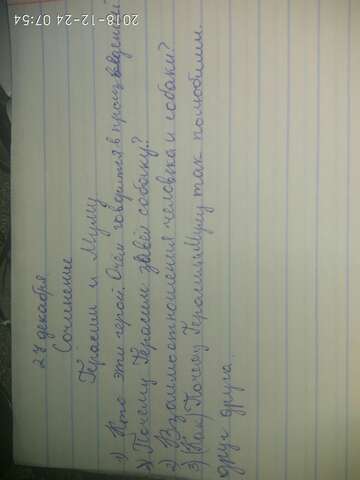 2018-12-24 07:54
24 декабря
Сочинение
Герасим и Муму
1) Кто эти герои. О чём говорится в произведении
2) Почему Герасим завёл собаку?
2) Взаимоотношения человека и собаки?
3) (Как) Почему Герасим и Муму так полюбили
друг друга.